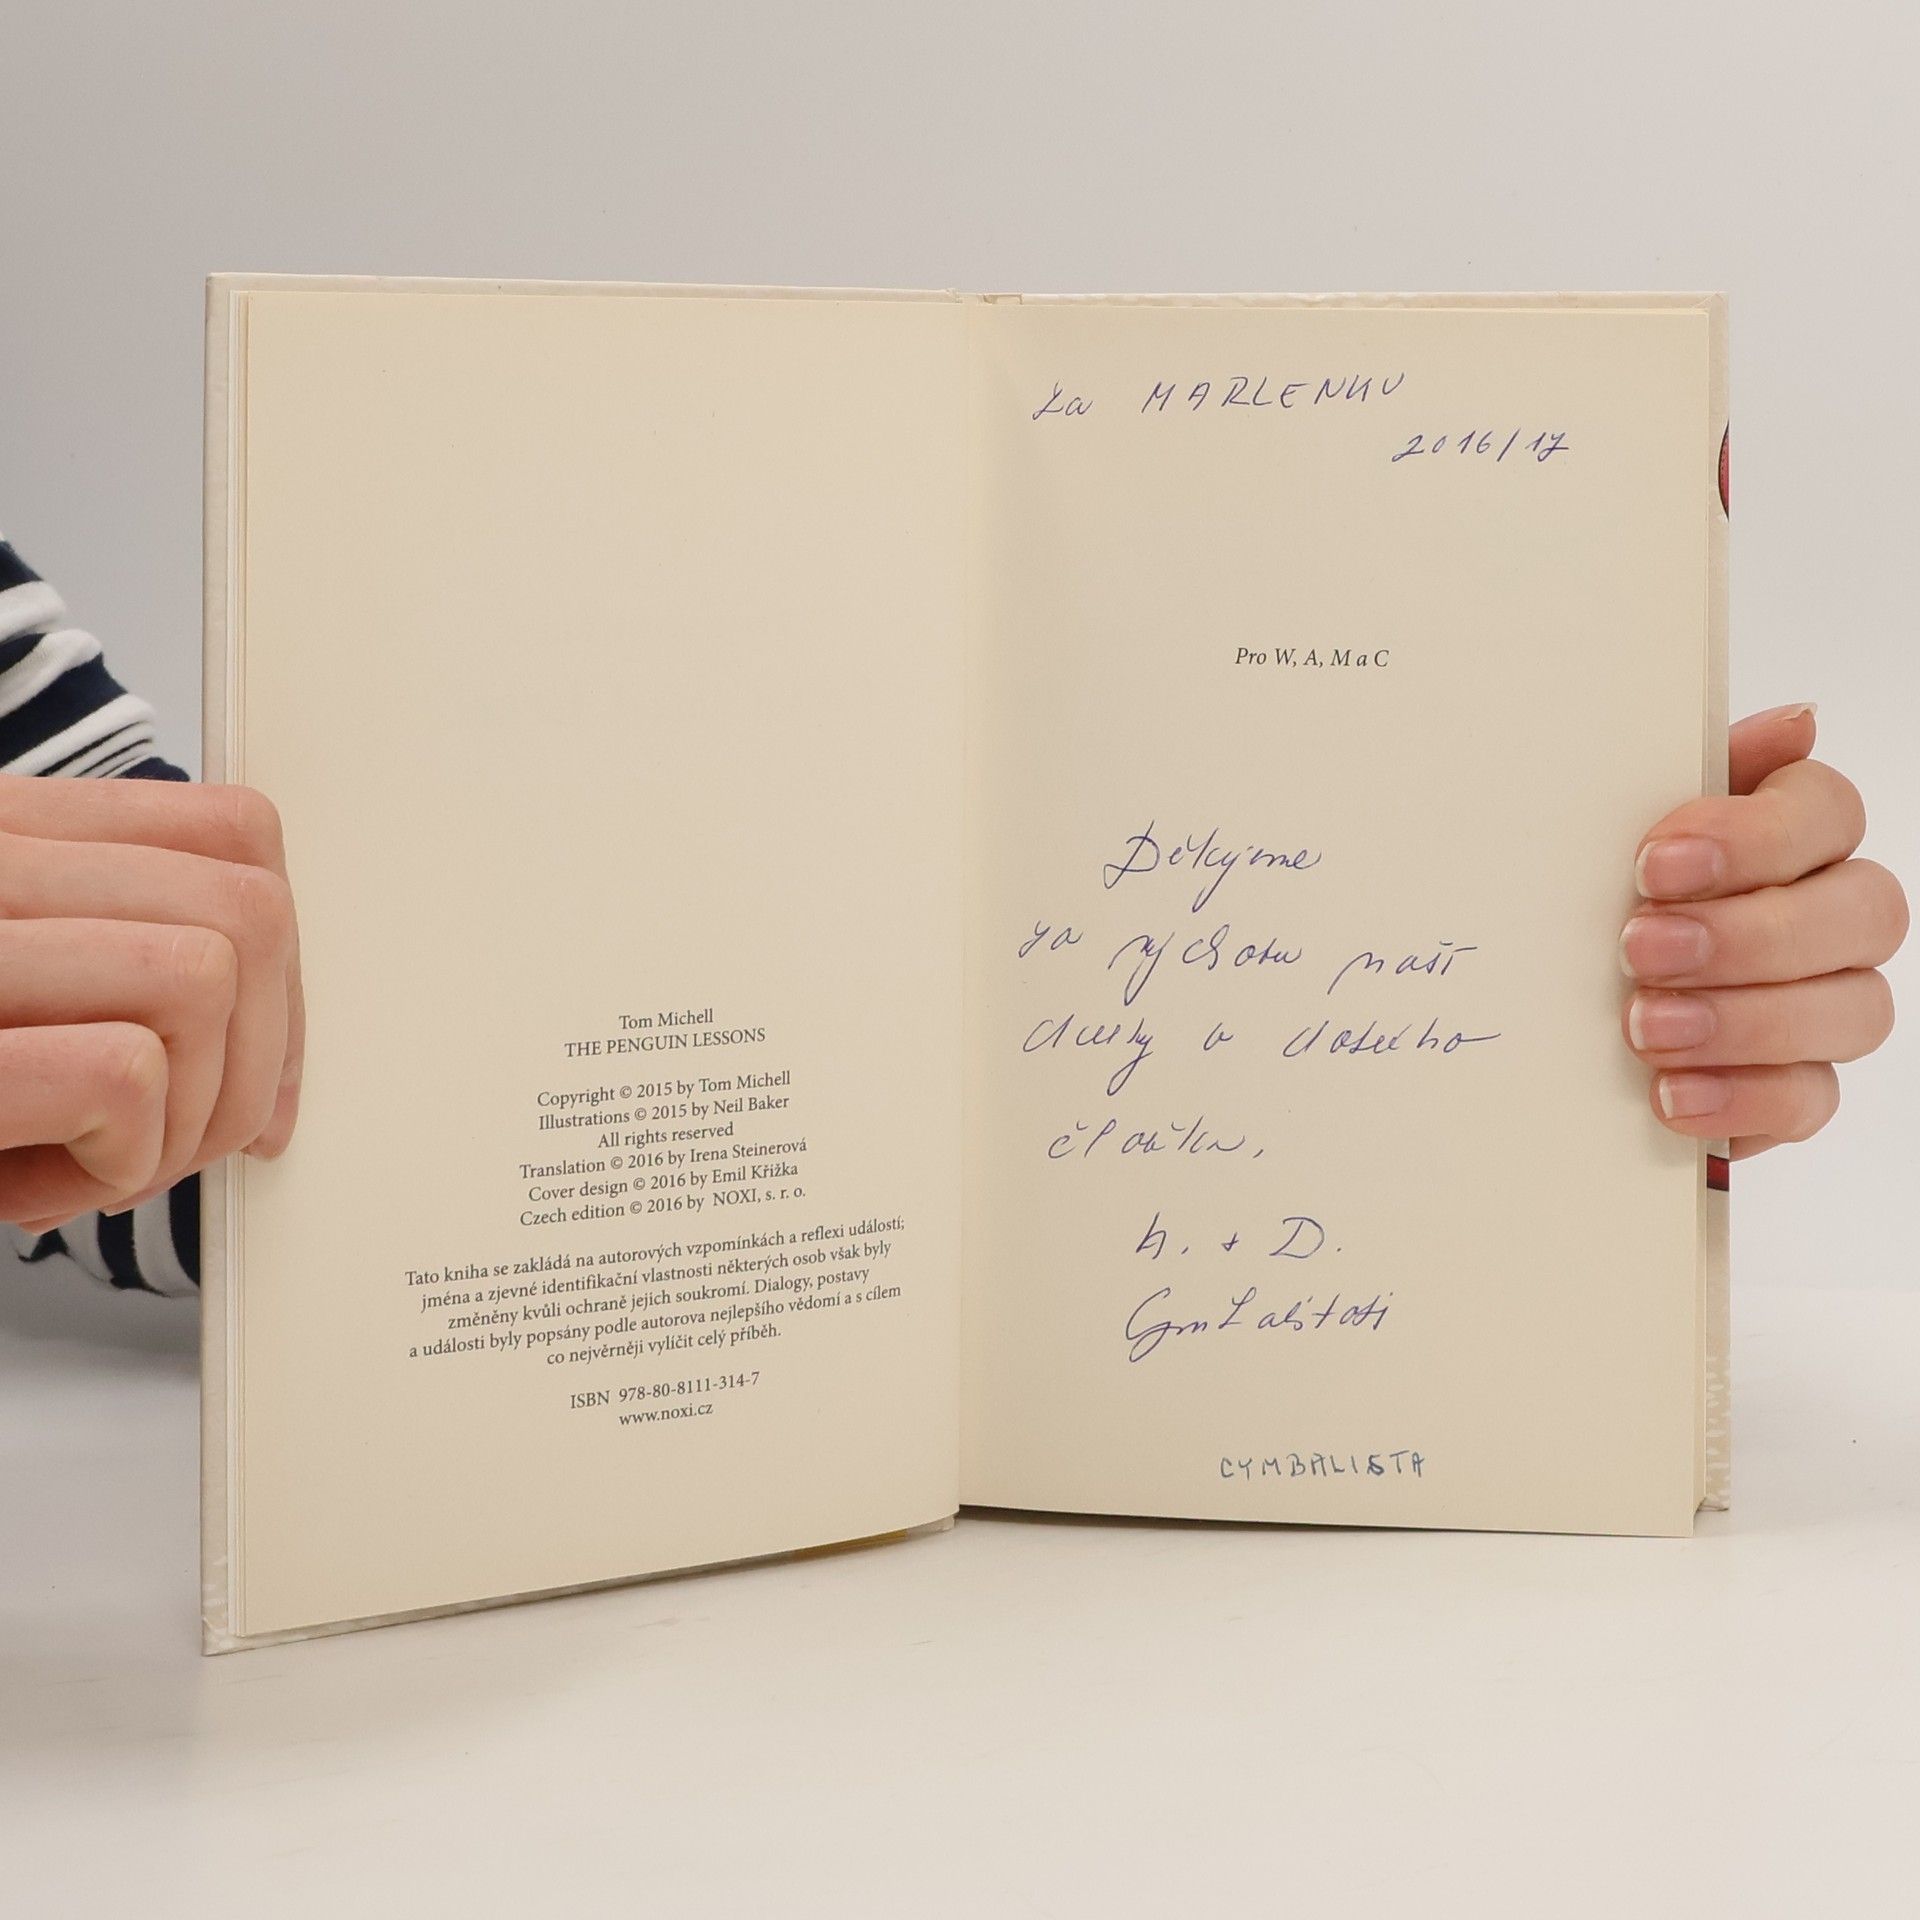 Tom Michell
THE PENGUIN LESSONS
Copyright © 2015 by Tom Michell
Illustrations © 2015 by Neil Baker
All rights reserved
Translation © 2016 by Irena Steinerová
Cover design © 2016 by Emil Křižka
Czech edition © 2016 by NOXI, s. r. o.
Tato kniha se zakládá na autorových vzpomínkách a reflexi událostí;
jména a zjevné identifikační vlastnosti některých osob však byly
změněny kvůli ochraně jejich soukromí. Dialogy, postavy
a události byly popsány podle autora nejlepšího vědomí a s cílem
co nejvěrněji vylíčit celý příběh.
ISBN 978-80-8111-314-7
www.noxi.cz
Za MARLENKU
2016/17
Pro W, A, M a C
Děkujeme
za výchovu naší
dcerky a
člověka,
+ D.
CYMBALISTA